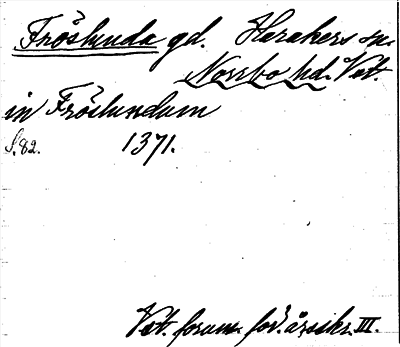 Fröslunda gd. Harakers sn.
Norrbo hd. Vst.
in Fröslundum
S. 82. 1371.
Vst. fornm. för. årsskr. III.